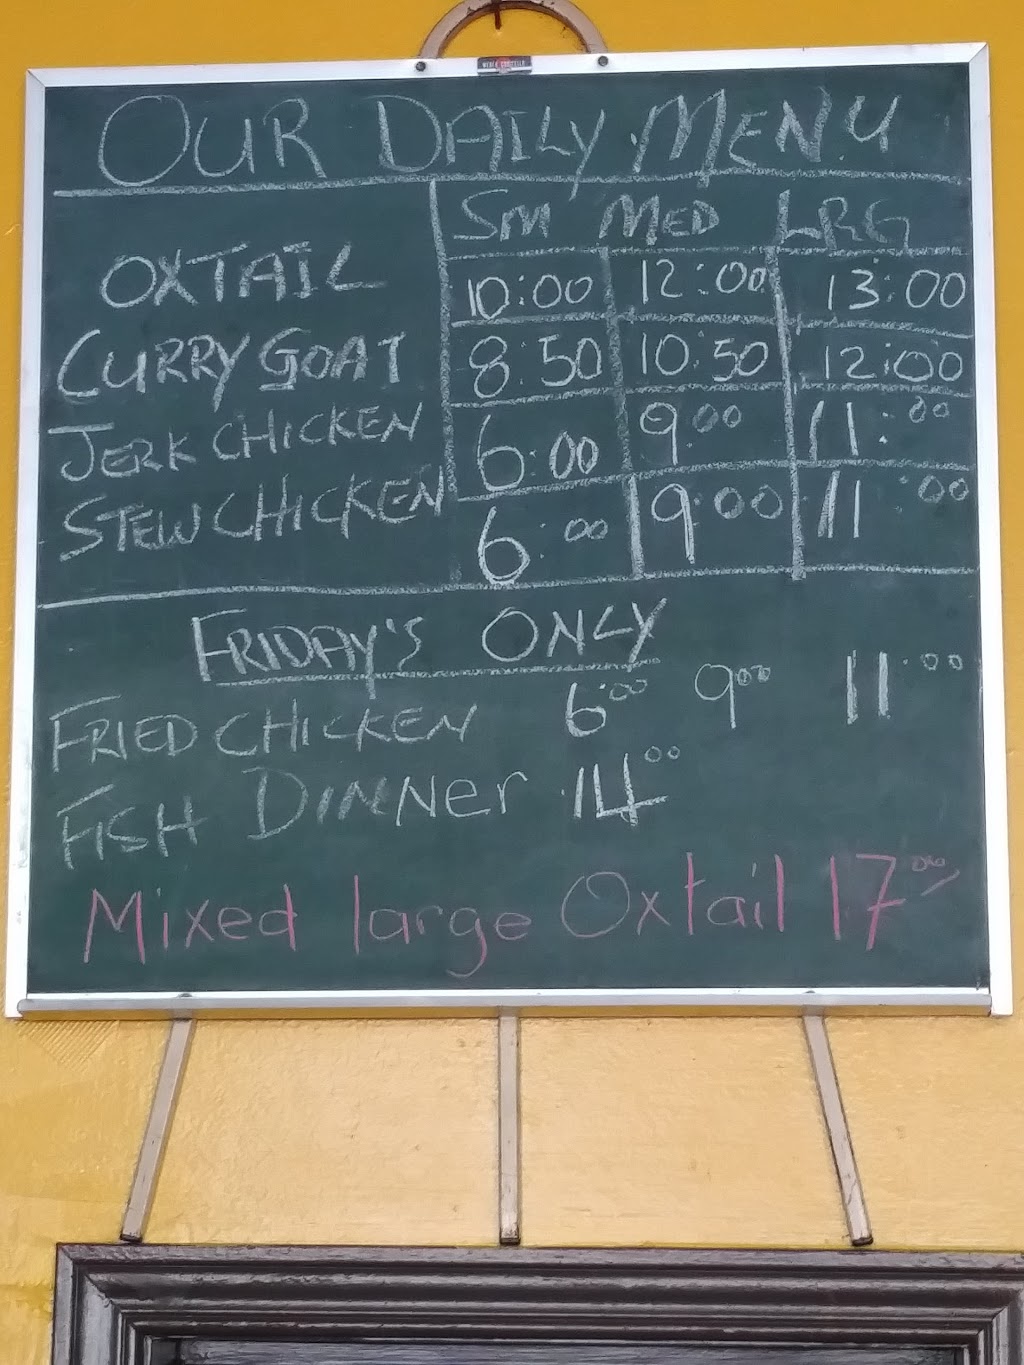 OUR DAILY MENU
SM MED LRG
OXTAIL 10:00 12:00 13:00
CURRY GOAT 8:50 10:50 12:00
JERK CHICKEN 6:00 9:00 11:00
STEW CHICKEN 6:00 9:00 11:00
FRIDAY'S ONLY
FRIED CHICKEN 6:00 9:00 11:00
FISH DINNer 14.00
Mixed large Oxtail 17.00